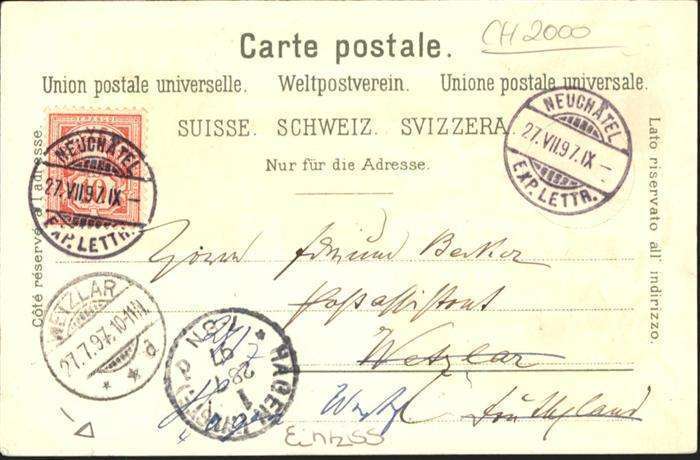 CH 2000
Carte postale.
Union postale universelle. Weltpostverein. Unione postale universale.
SUISSE. SCHWEIZ. SVIZZERA.
Nur für die Adresse.
Côté réservé à l'adresse.
Lato riservato all' indirizzo.
NEUCHATEL
27.VII.97.IX –
EXP. LETTR.
NEUCHATEL
27.VII.97.IX –
EXP. LETTR.
Herrn Becker
Postassistent
Wetzlar
WETZLAR
27.7.97. 10-11N.
* * d
HAGEN
28 7
97
Hagen Westf